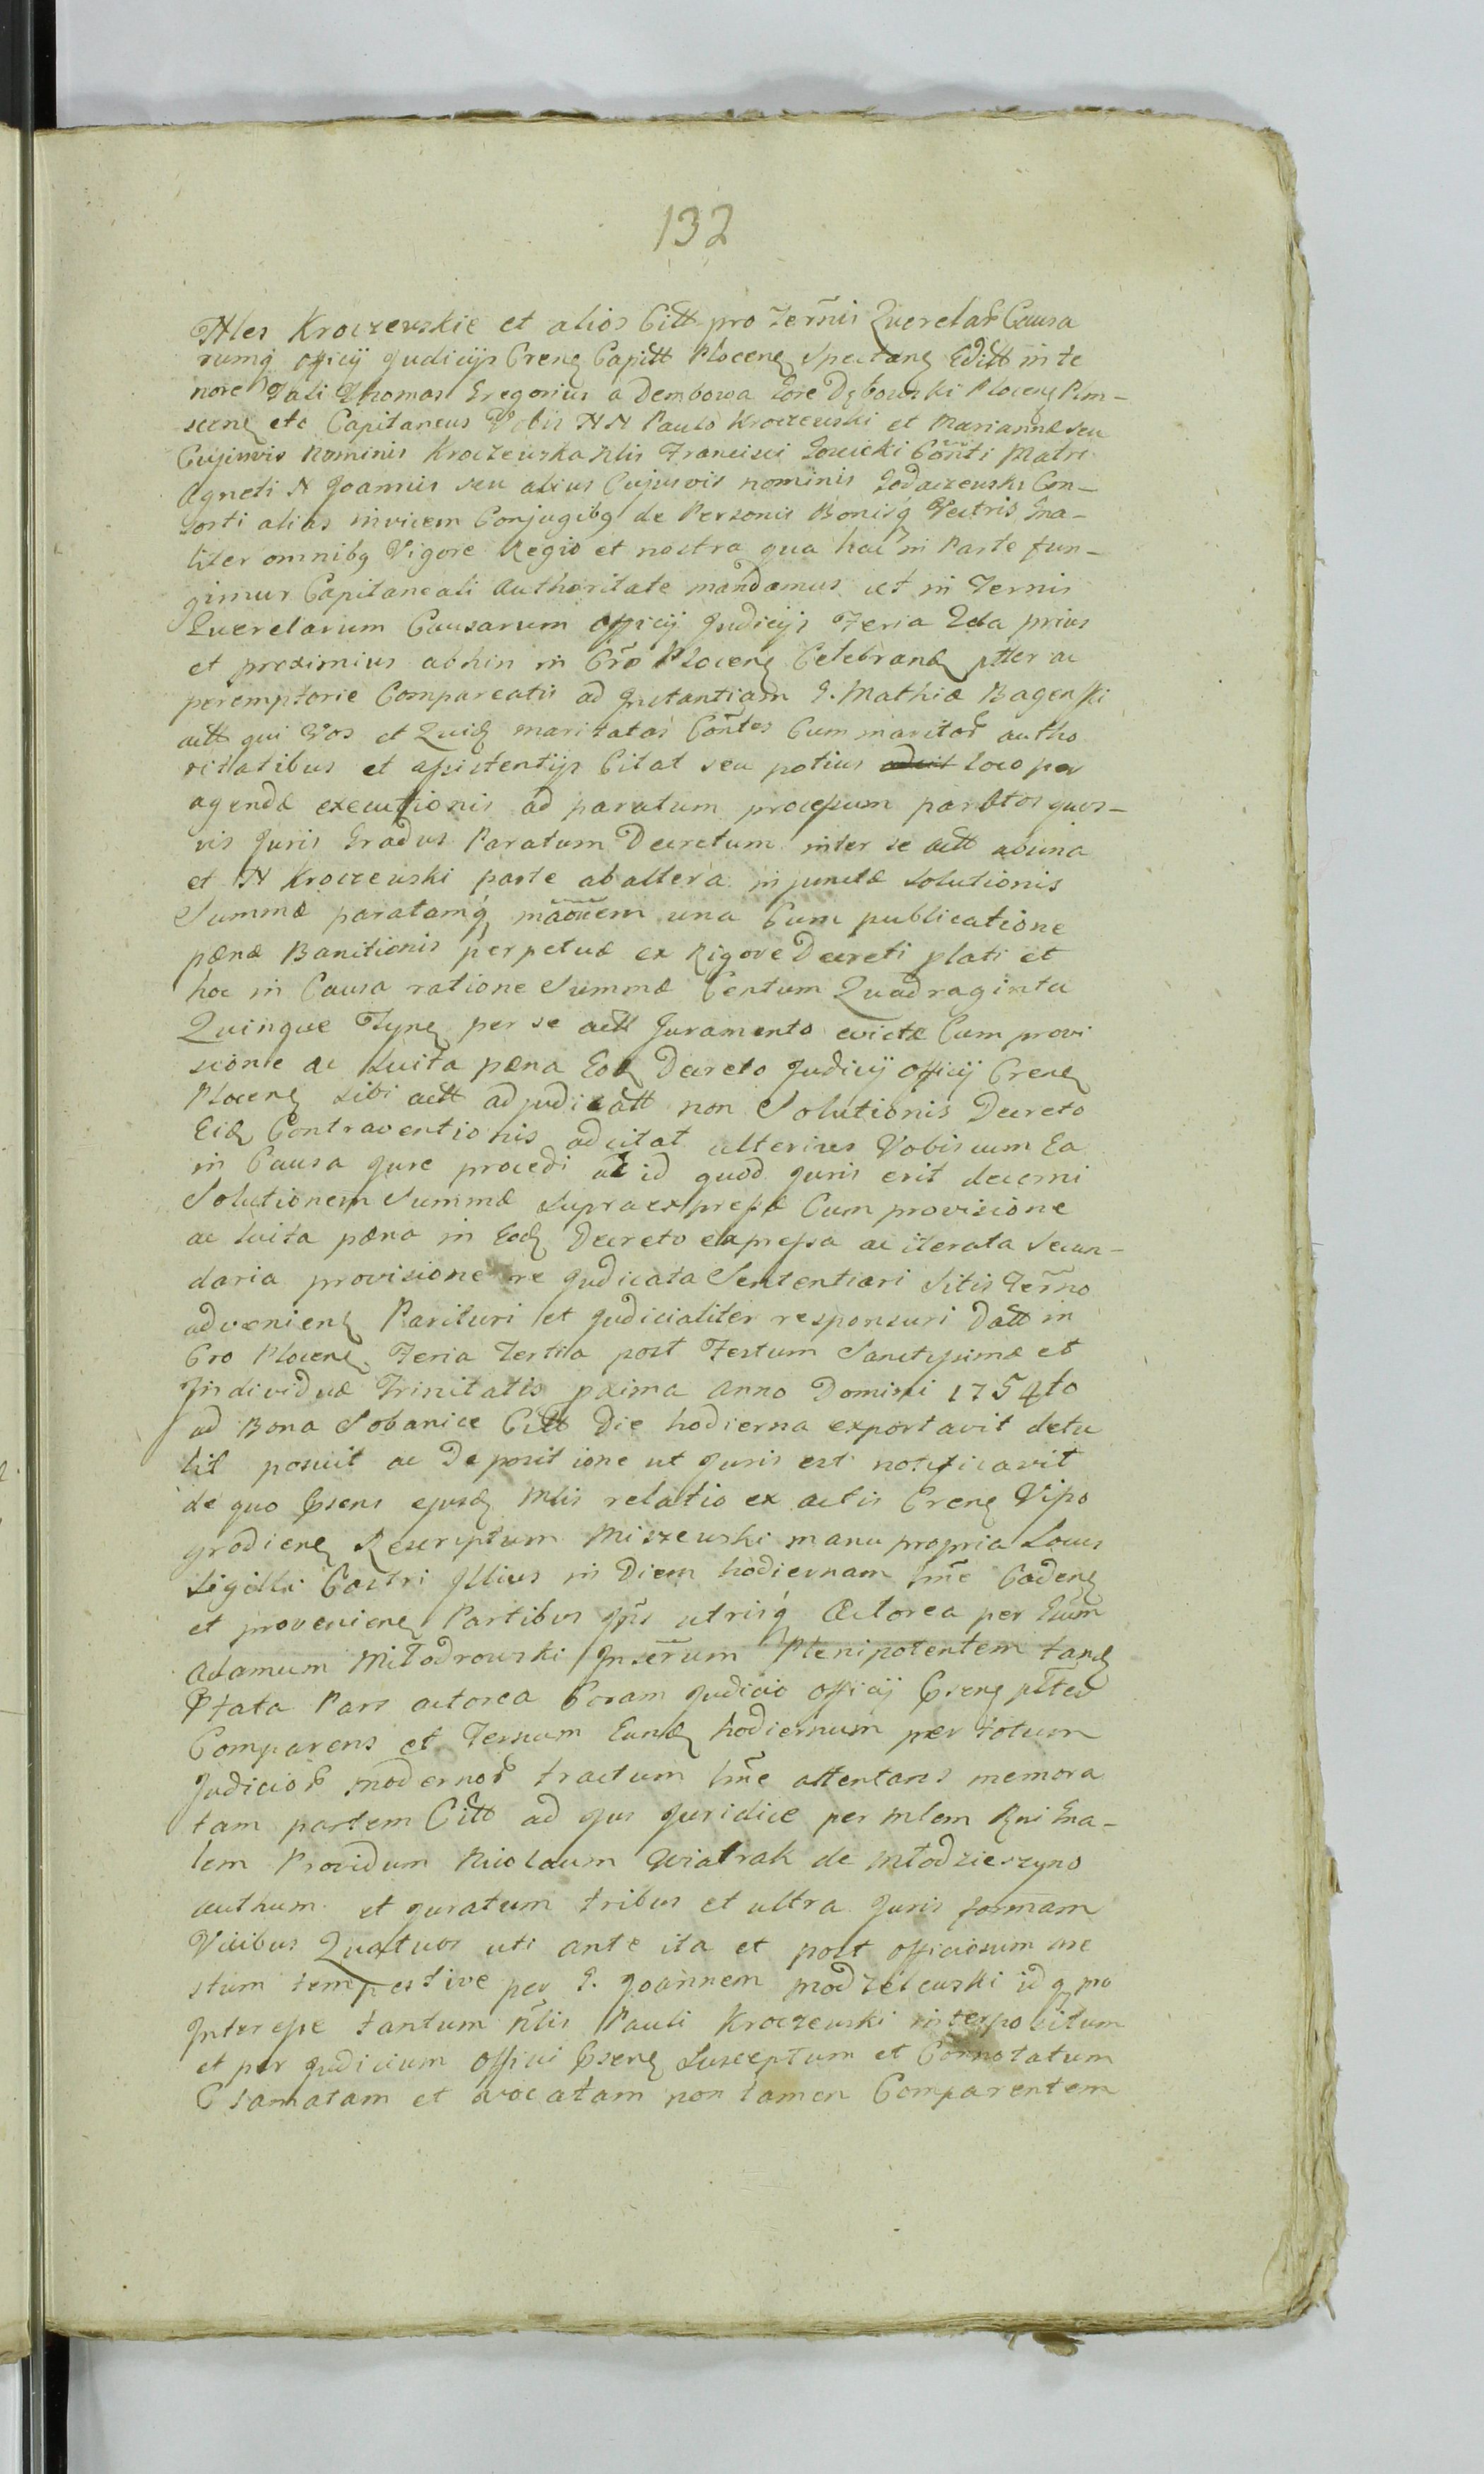 132
Nles Kroczewskie et alios Citt pro Ternis Querelar Causa
rumq officij Judicijs Crens Capitt Plocens Spectans Editt in te
nore tali Thomas Gregorius a Dembowa Gore Dębowski Plocens Plon-
scens etc Capitaneus Vobis NN Paulo Kroczewski et Mariannæ seu
Cujusvis Nominis Kroczewska Nlis Francisci Conti Matri
Agneti N Joannis seu alius Cujusvis nominis Godaczewski Con-
sorti alias invicem Conjugibq de Personis Bonisq Vestris Gna-
liter omnibq Vigore Regio et nostra qua hac in Parte fun-
gimur Capitaneali Authoritate mandamus ut in Ternis
Querelarum Causarum officij Judicijs Feria 2da prius
et proximius abhin in Cro Plocens Celebrand ptter ac
peremptorie Compareatis ad Instantiam G. Mathiæ Bagenski
actt qui Vos et Quid maritatas Contes Cum maritor autho
ritatibus et assistentijs Citat seu potius loco per
agendæ executionis ad paratum processum paratos quos-
vis Juris Gradus Paratum Decretum inter se actt ab una
et N Kroczewski parte ab altera injunctæ solutionis
Summæ paratamq maonem una Cum publicatione
pænæ Banitionis perpetuæ ex Rigore Decreti plati et
hoc in Causa ratione Summæ Centum Quadraginta
Quinque Tynf per se actt Juramento evictæ Cum provi
sione ac luita pæna Eod Decreto Judicij officij Crens
Plocens sibi actt adjudicatt non Solutionis Decreto
Eid Contraventionis adcitat ulterius Vobiscum Ea
in Causa Jure procedi ac id quod Juris erit decerni
Solutionem Summæ supra expressæ Cum provisione
ac luita pæna in Eod Decreto expressa ac iterata Secun-
daria provisione re Judicata Sententiari Sitis Terno
adveniens Parituri et Judicialiter responsuri Datt in
Cro Plocens Feria Tertia post Festum Sanctissimæ et
Individuæ Trinitatis pxima Anno Domini 1754to
ad Bona Sobanice Citt Die hodierna exportavit detu
lit posuit ac Deposit ione ut Juris est notificavit
de quo psens ejusd Mlis relatio ex actis Crens Viso
grodiens Rescriptum Miszewski manu propria Locus
Sigilli Castri Illius in Diem hodiernam lme Cadens
et proveniens Partibus Ipis utrisq Actorea per Gsum
Adamum Miłodrowski Plenipotentem tand
Ptata Pars actorea Coram Judicio officij psens ptter
Comparens et Ternum Eund hodiernum per totum
Judicior modernor tractum lme attentans memora
tam partem Citt ad Jus Juridice per Mlem Rni Gna-
lem Providum Nicolaum Wiatrak de Młodzieszyno
authum et juratum tribus et ultra Juris formam
Vicibus Quatuor uti ante ita et post officiosum are
stum tempestive per G. Joannem Modzelewski idq pro
Interesse tantum Nlis Pauli Kroczewski interpositum
et per Judicium Officii psens Susceptum et Connotatum
Clamatam et avocatam non tamen Comparentem